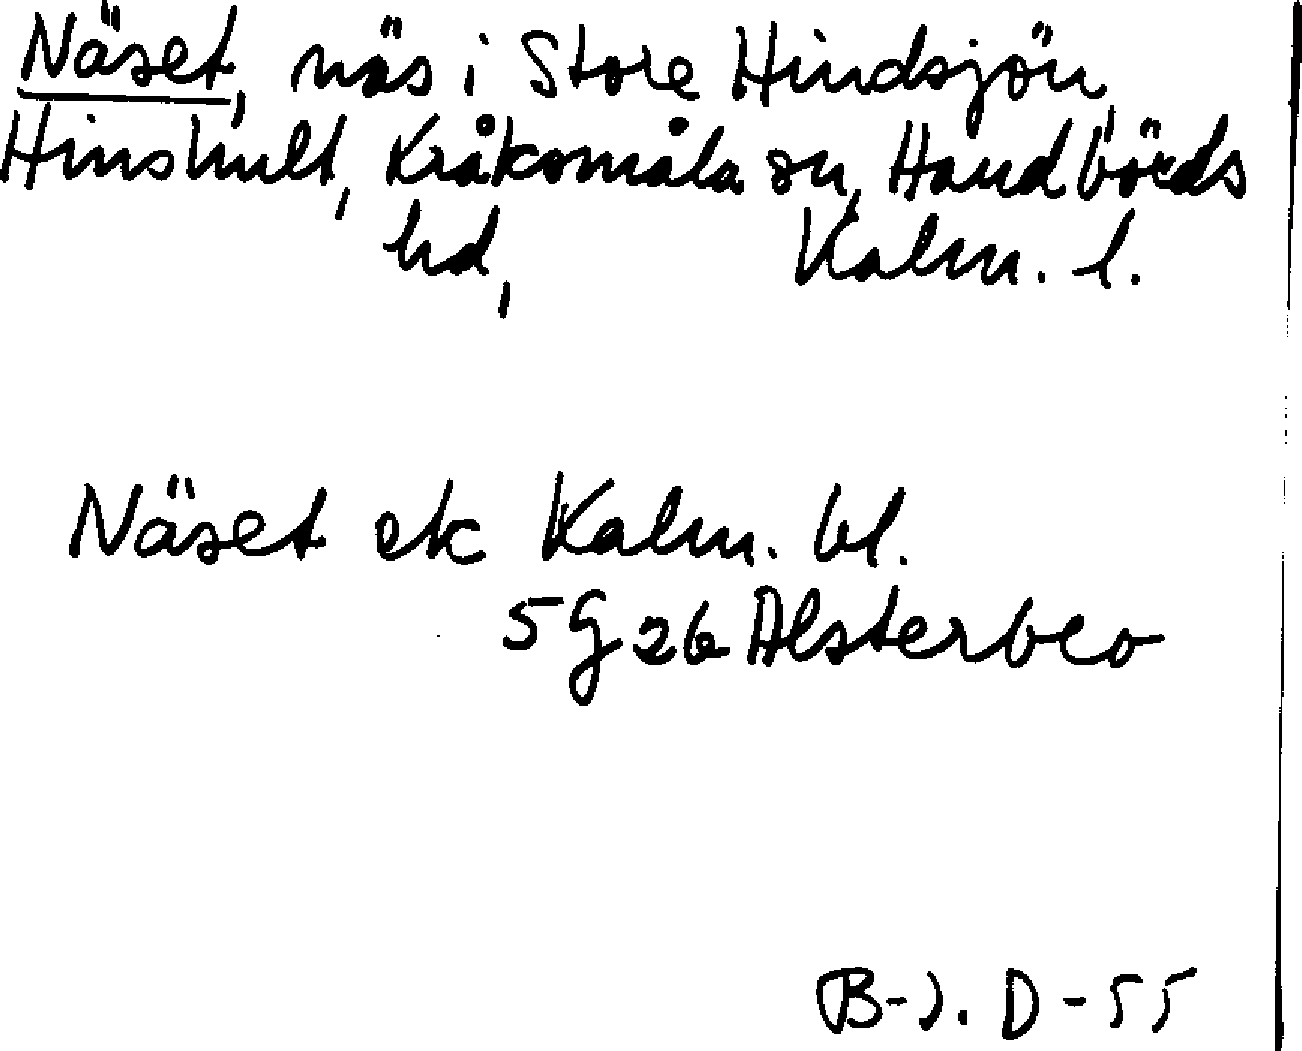 Näset, näs i Store Hindsjön,
Hinshult, Kråksmåla sn, Handbörds
hd, Kalm. l.
Näset ek Kalm. bl.
5 G 26 Alsterbro
B-J. D-55